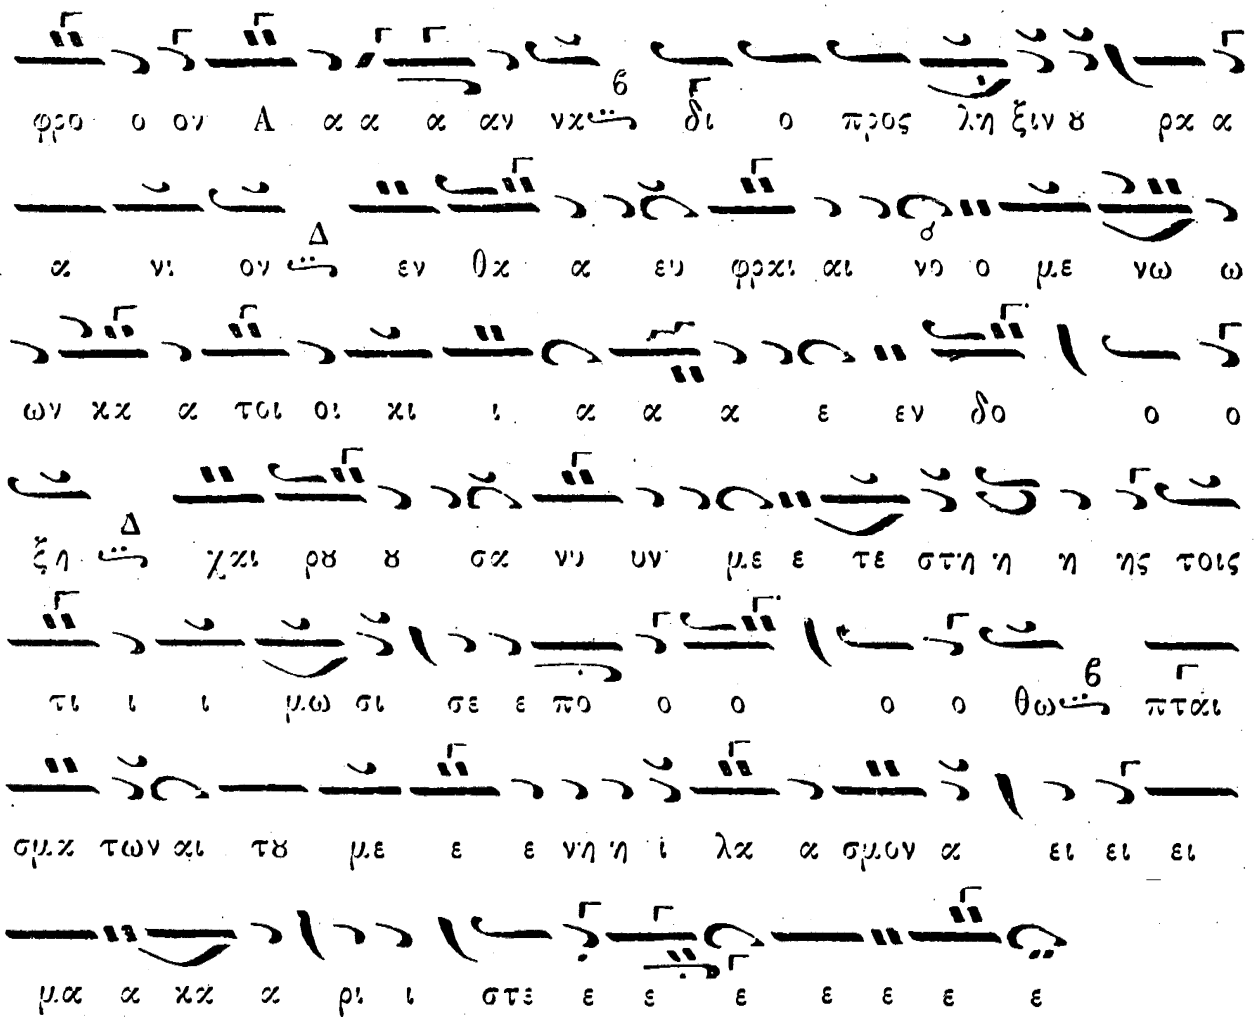 φρο ο ον Α α α α αν να β δι ο προς λη ξιν ȣ ρα α
α νι ον Δ εν θα α ευ φραι αι νο ο με νω ω
ων κα α τοι οι κι ι α α α ε εν δο ο ο
ξη Δ χαι ρȣ ȣ σα νυ υν με ε τε στη η η ης τοις
τι ι ι μω σι σε ε πο ο ο ο ο θω β πται
σμα των αι τȣ με ε ε νη η ι λα α σμον α ει ει ει
μα α κα α ρι ι στε ε ε ε ε ε ε ε